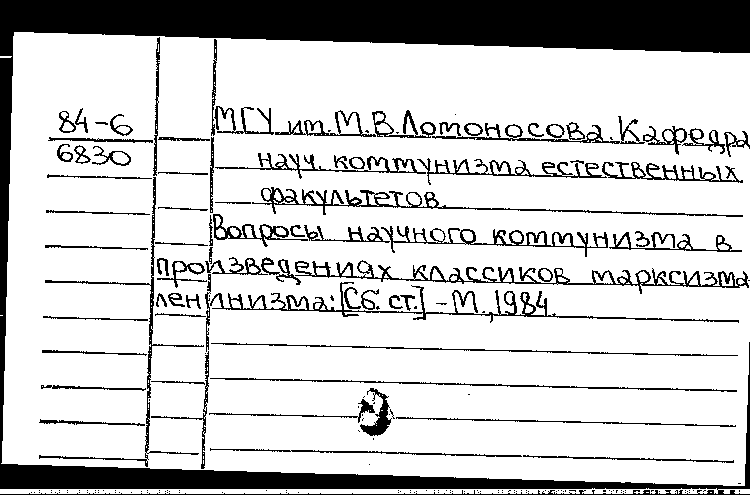 84-6 МГУ им. М.В.Ломоносова. Кафедра
6830 науч. коммунизма естественных
факультетов.
Вопросы научного коммунизма в
произведениях классиков марксизма
ленинизма: [Сб. ст.] - М., 1984.